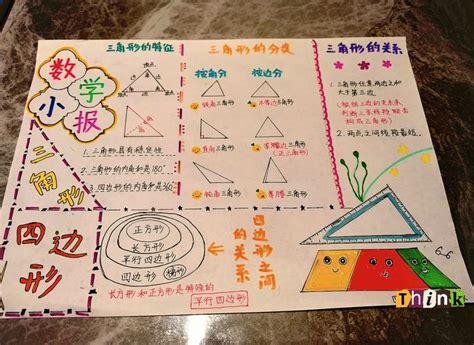 数学
小报
三角形
四边形
三角形的特征
顶点
1.三角形具有稳定性
2.三角形的内角和是180°
3.四边形的内角和是360°
三角形的分类
按角分
按边分
锐角三角形
不等边三角形
直角三角形
等边三角形
(正三角形)
钝角三角形
等腰三角形
三角形的关系
1.三角形任意两边之和
大于第三边
2.两点之间线段最短.
正方形
长方形
平行四边形
四边形
梯形
四边形之间
的关系
长方形和正方形是特殊的
平行四边形
6-6
Think